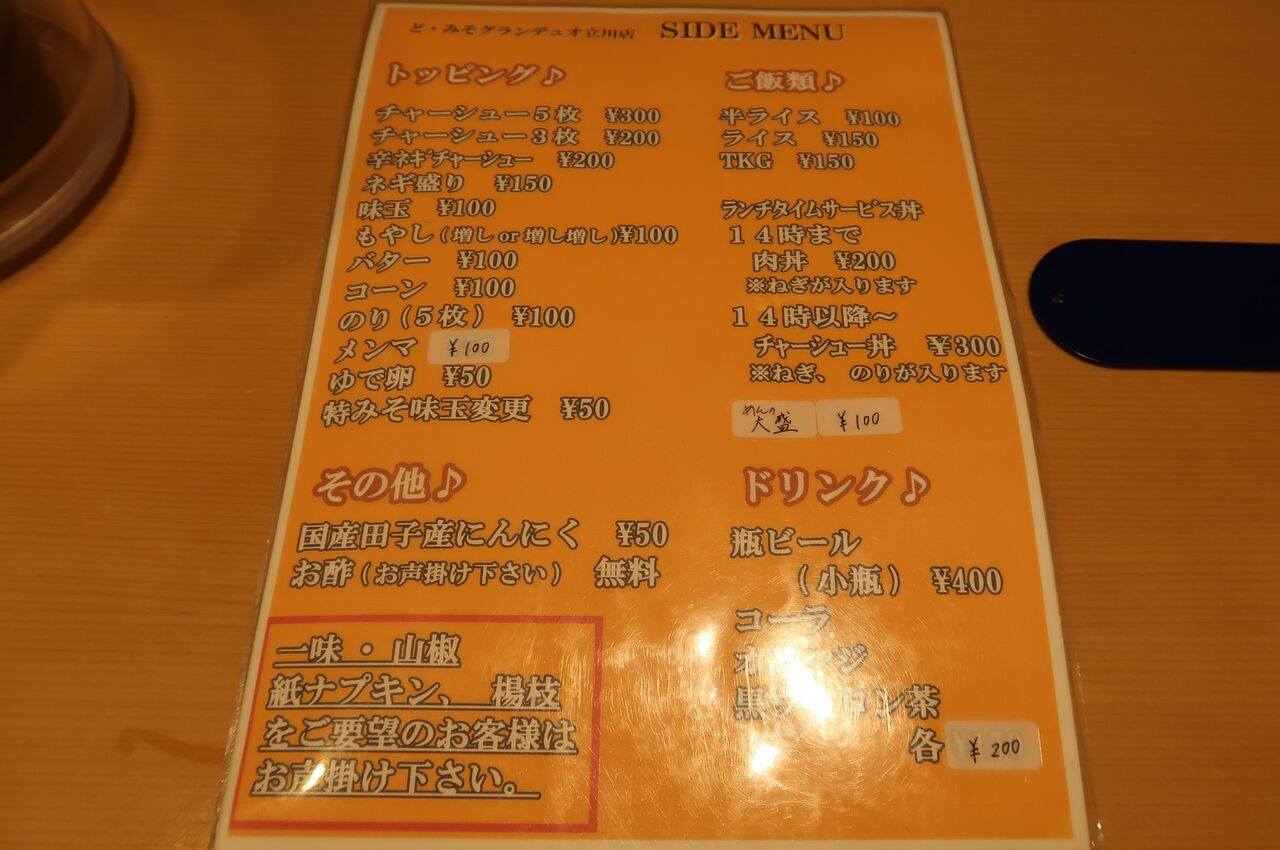 ど・みそグランデュオ立川店 SIDE MENU
トッピング♪
チャーシュー５枚 ¥300
チャーシュー３枚 ¥200
辛ネギチャーシュー ¥200
ネギ盛り ¥150
味玉 ¥100
もやし（増し or 増し増し）¥100
バター ¥100
コーン ¥100
のり（５枚） ¥100
メンマ ¥100
ゆで卵 ¥50
特みそ味玉変更 ¥50
その他♪
国産田子産にんにく ¥50
お酢（お声掛け下さい） 無料
一味・山椒
紙ナプキン、 楊枝
をご要望のお客様は
お声掛け下さい。
ご飯類♪
半ライス ¥100
ライス ¥150
TKG ¥150
ランチタイムサービス丼
１４時まで
肉丼 ¥200
※ねぎが入ります
１４時以降〜
チャーシュー丼 ¥300
※ねぎ、 のりが入ります
めんの
大盛 ¥100
ドリンク♪
瓶ビール
（小瓶） ¥400
コーラ
各 ¥200